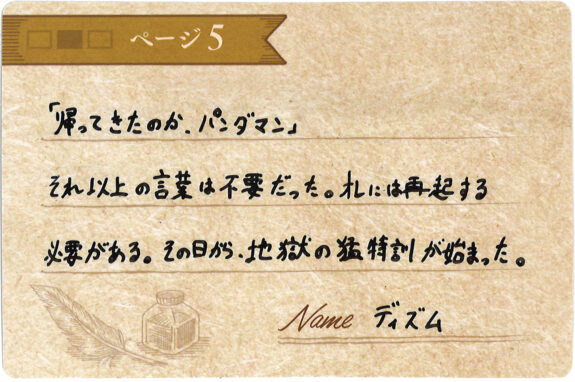 ページ5
「帰ってきたのか、パンダマン」
それ以上の言葉は不要だった。札には再起する
必要がある。その日から、地獄の猛特訓が始まった。
Name ディズム